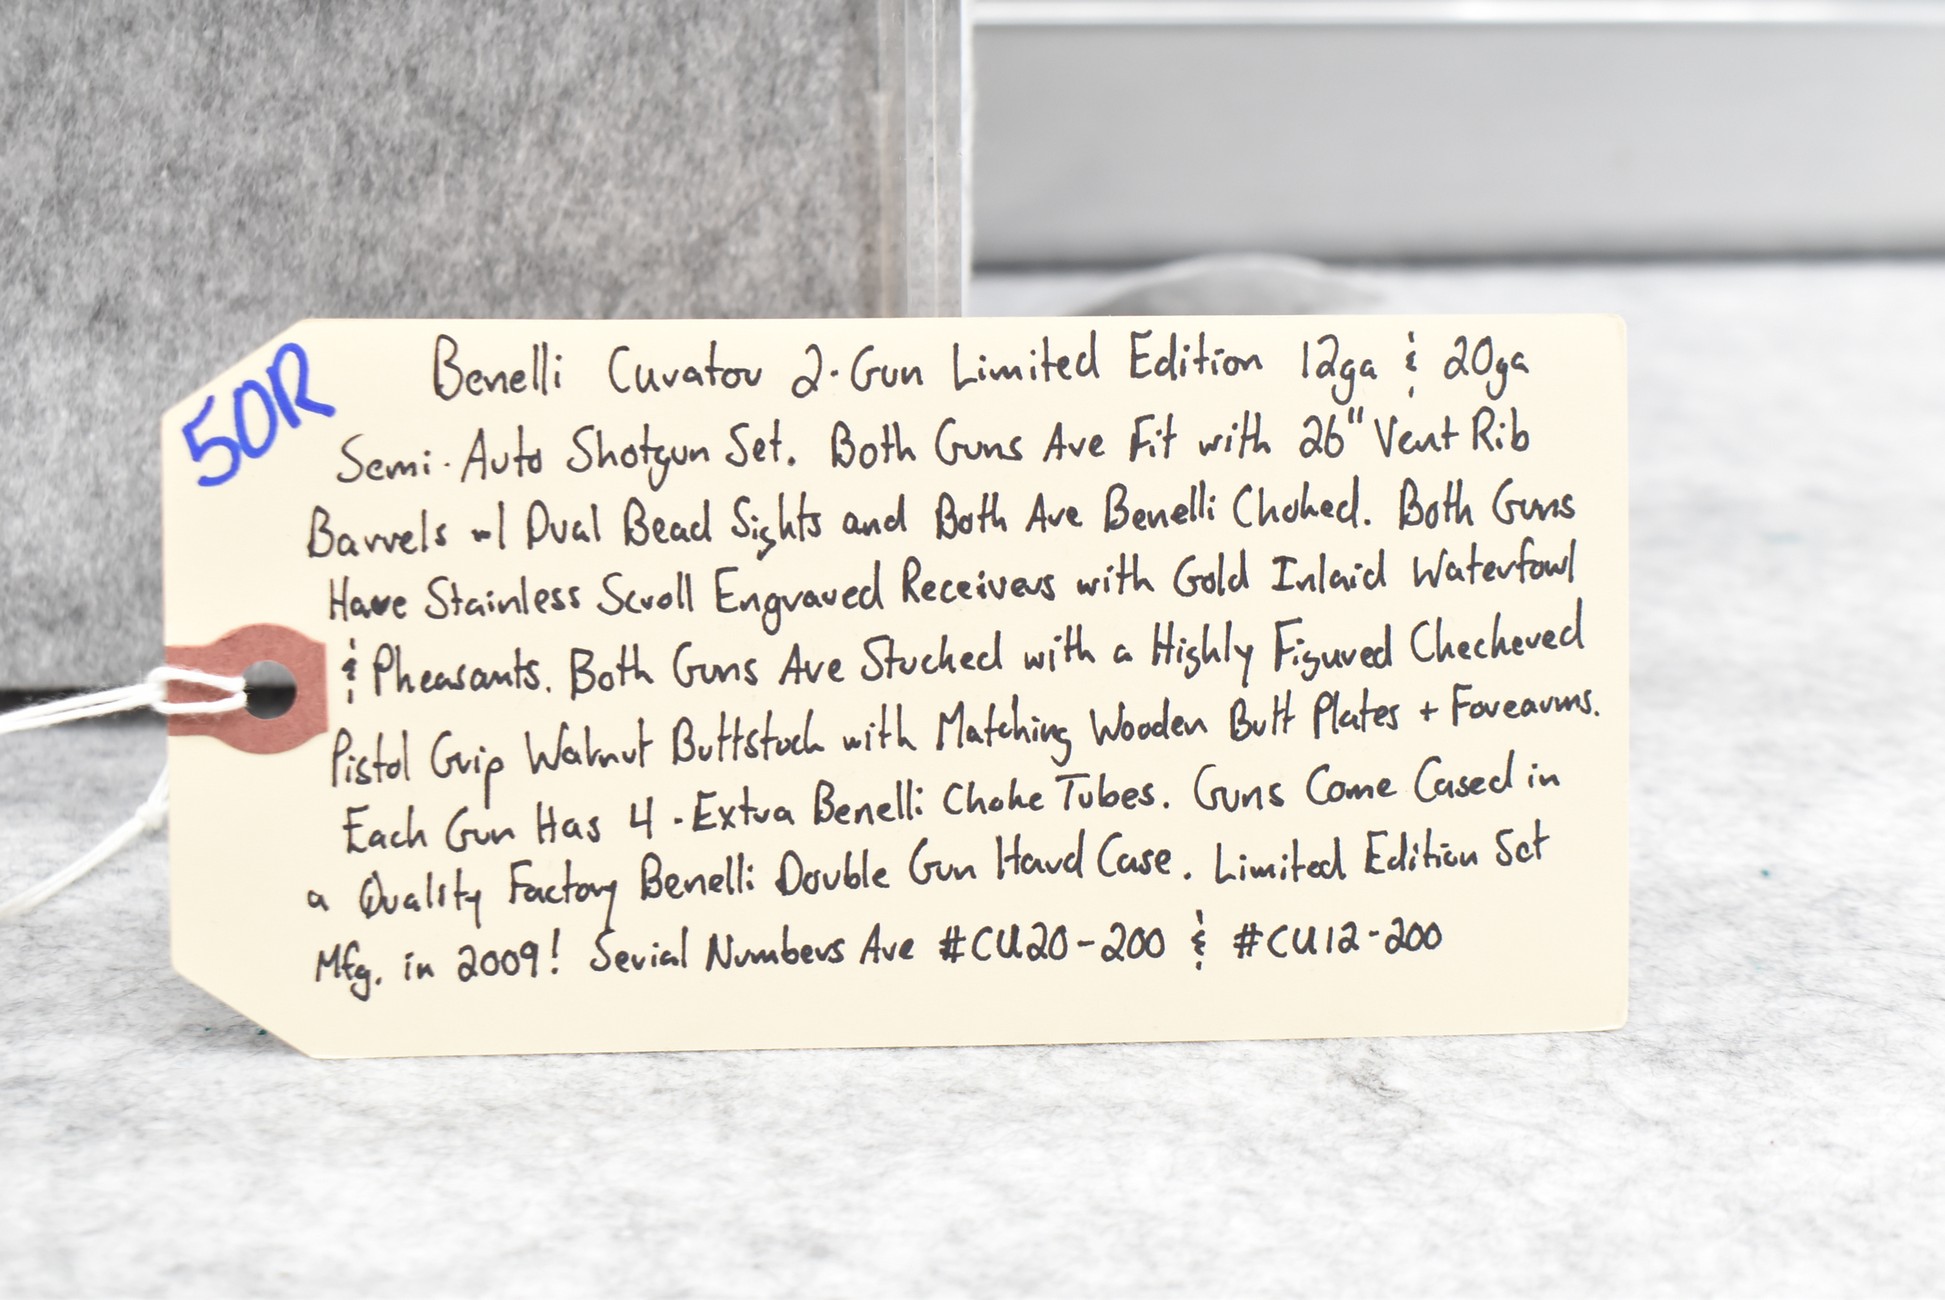 50R
Benelli Curator 2-Gun Limited Edition 12ga & 20ga
Semi-Auto Shotgun Set. Both Guns Are Fit with 26" Vent Rib
Barrels w/ Dual Bead Sights and Both Are Benelli Choked. Both Guns
Have Stainless Scroll Engraved Receivers with Gold Inlaid Waterfowl
& Pheasants. Both Guns Are Stocked with a Highly Figured Checkered
Pistol Grip Walnut Buttstock with Matching Wooden Butt Plates + Forearms.
Each Gun Has 4-Extra Benelli Choke Tubes. Guns Come Cased in
a Quality Factory Benelli Double Gun Hard Case. Limited Edition Set
Mfg. in 2009! Serial Numbers Are #CU20-200 & #CU12-200